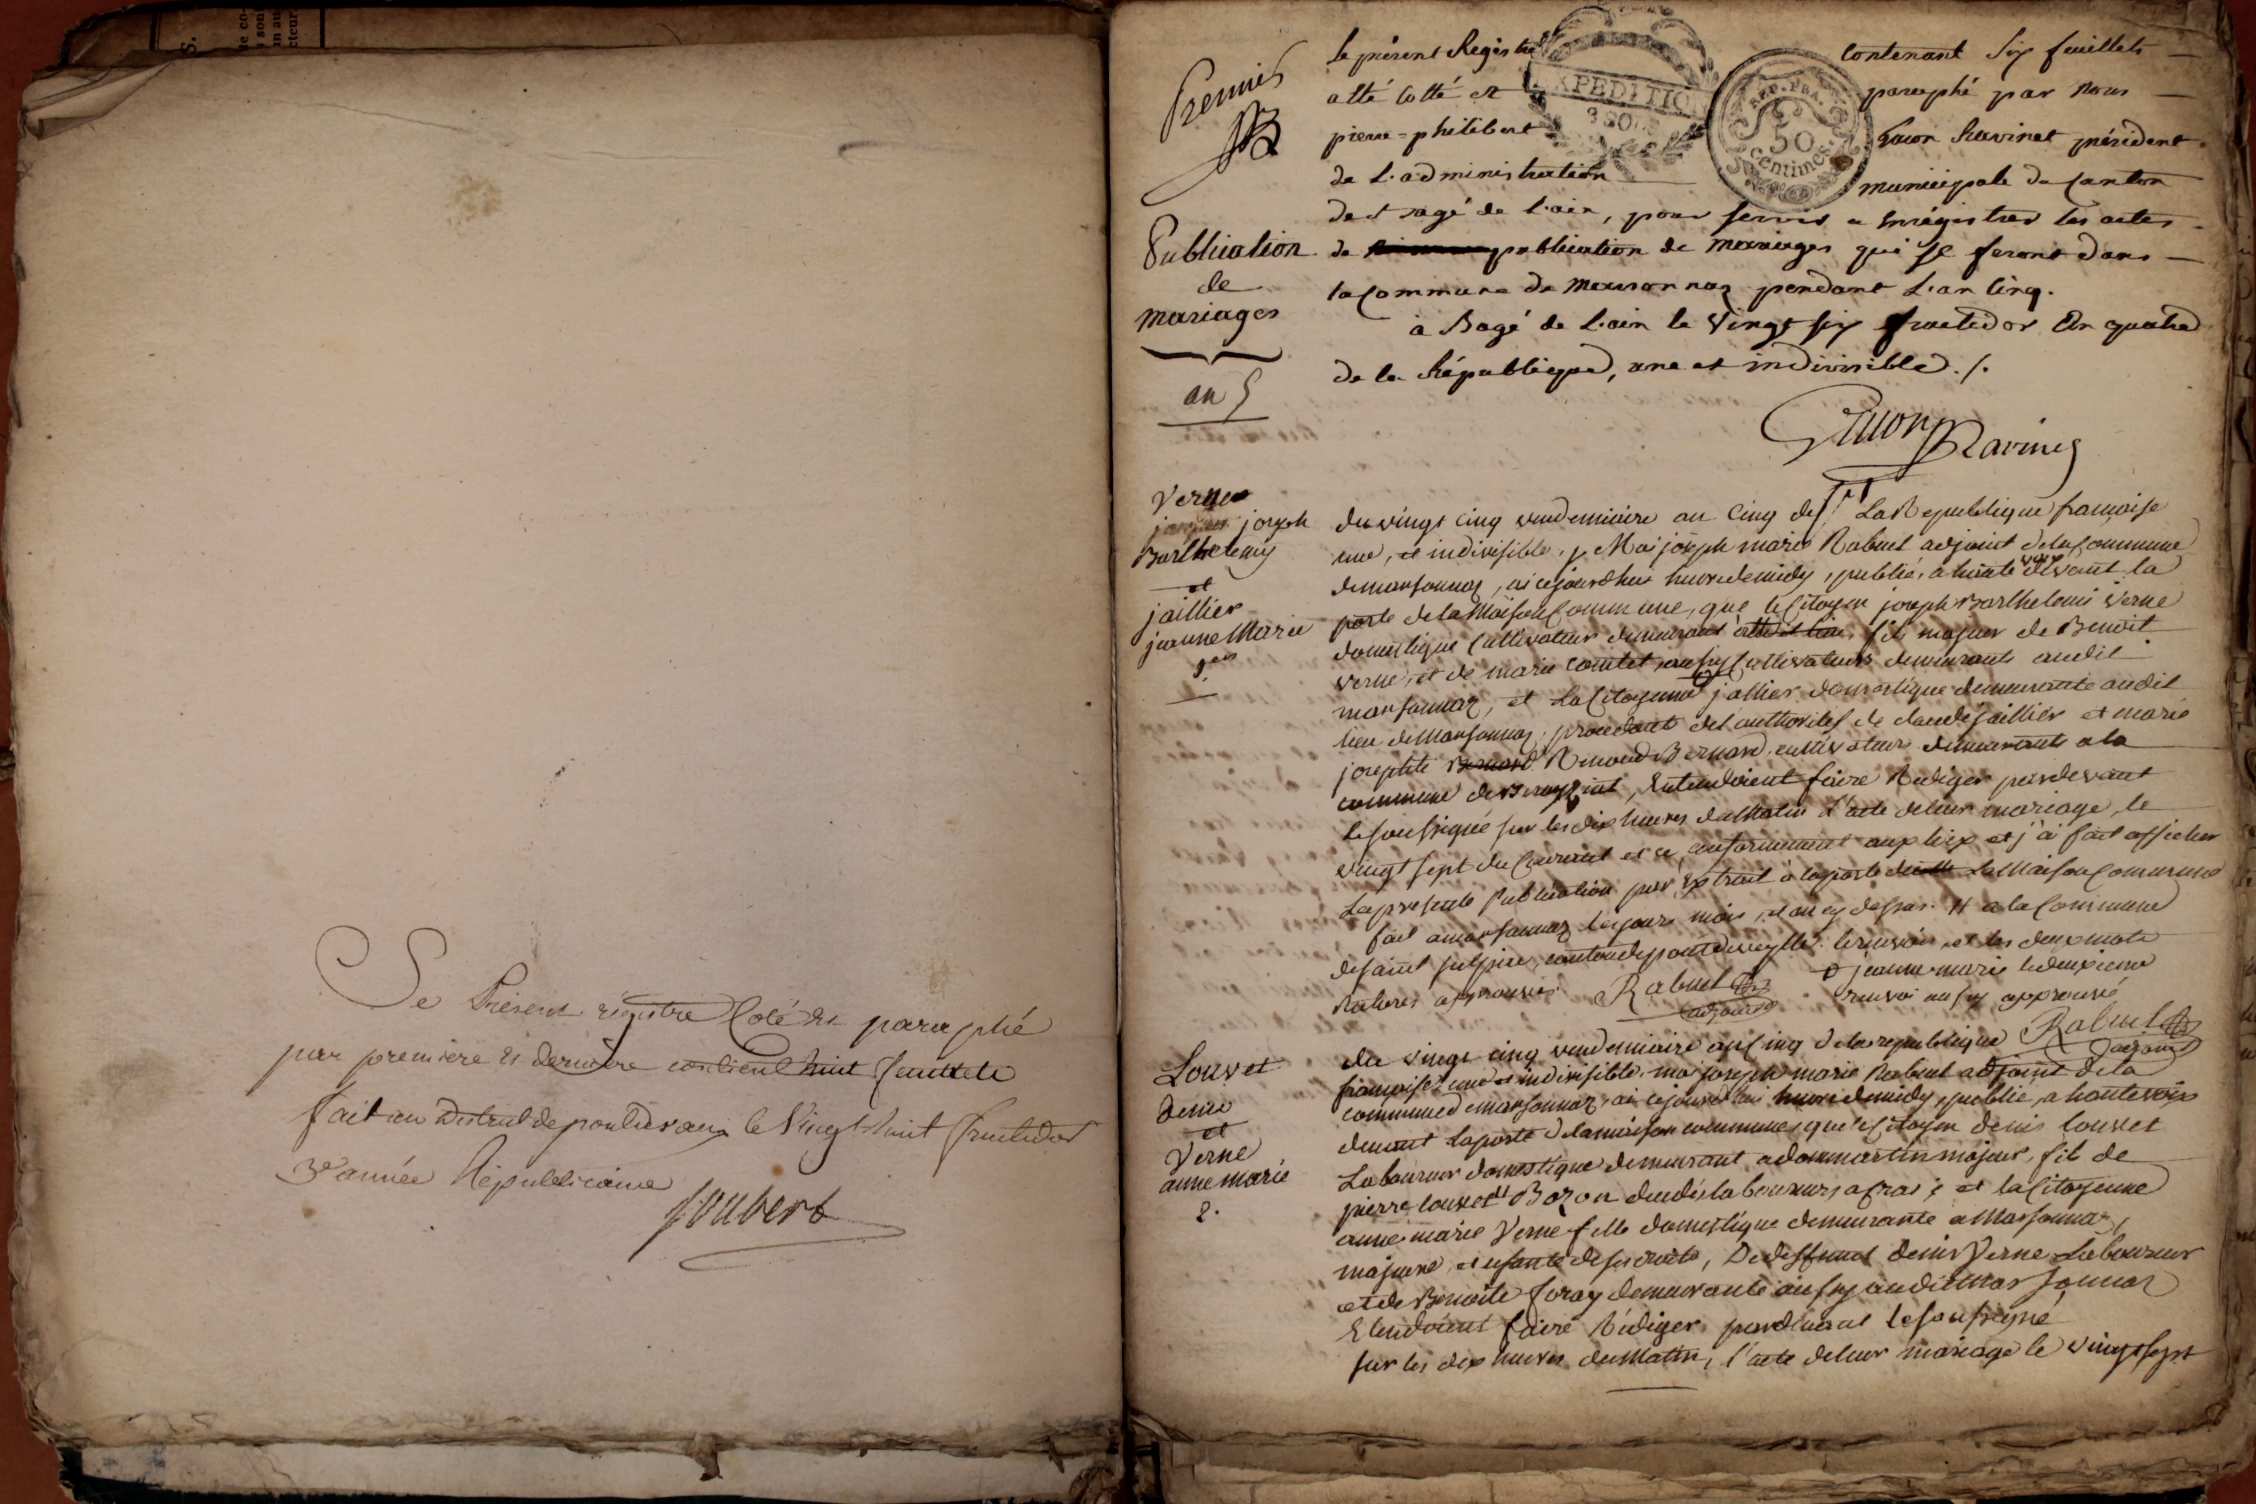 Le Présent régistre Coté et paraphé
par premiere et derniere contient huit feuillets
fait au District de pontdevaux le Vingt huit fructidor
3e année Républicaine
Joubert
Premier
Publication
de
mariages
an 5
Le présent Registre contenant six feuillets
a été cotté et paraphé par nous
pierre=philibert Guon Ravinet président
de L'administration municipale du Canton
de Bagé de l'ain, pour servir a enrégistrer les actes
de publication de mariages qui se feront dans
la Commune de Marsonnaz pendant L'an cinq.
à Bagé de l'ain le Vingt six fructidor An quatre
de la République, une et indivisible./.
EXPEDITION
REP. FRA.
50
centimes.
Guon Ravinet
Verne
joseph
Barthelemy
et
jaillier
jeanne Marie
du vingt cinq vendemiaire an Cinq de La Republique francaise
une, et indivisible, Moi joseph marie Rabuel adjoint de la Commune
de marsonnaz, ai cejourdhui heure de midy, publié, a haute voix devant la
porte de la Maison Commune, que le Citoyen joseph Barthelemi Verne
domestique Cultivateur demeurant audit lieu, fils majeur de Benoit
Verne, et de marie Comtet, aussy Cultivateurs demeurants audit
marsonnaz, et La Citoyenne jallier domestique demeurante audit
lieu de marsonnaz, procedant des authorités de claude jaillier et marie
josephte Bernard Renoud Bernard, cultivateurs demeurants a la
commune de, Entendoient faire Rediger pardevant
le soussigné sur les dix heures du Matin L'acte de leur mariage, le
vingt sept du Courant et ce, conformement aux loix et j'ai fait afficher
La presente Publication par Extrait a la porte de la Maison Commune
fait a marsonnaz les jour mois, et an cy dessus. # a la Commune
de saint sulpice, canton de pontdeveylle. le renvoi, et les deux mots
Raturés approuvés. Rabuel adjoint
jeanne marie le deuxieme
renvoi aussy approuvé
Rabuel adjoint
Louvet
denis
et
Verne
anne marie
2.
du vingt cinq vendemiaire an Cinq de la republique
francaise une et indivisible, moi joseph marie Rabuel adjoint de la
commune de marsonnaz, ai cejourdhui heure de midy, publié, a haute voix
devant la porte de la maison commune, que le Citoyen denis Louvet
Laboureur domestique demeurant a dommartin majeur, fils de
pierre Louvet Bozon laboureurs a Cras; et la Citoyenne
anne marie Verne fille domestique demeurante a Marsonnaz,
majeure, et usante de ses droits, De deffunt denis Verne Laboureur
et de Benoite foray demeurante aussy audit Marsonnaz
Etendoient faire Rédiger pardevant le soussigné
sur les dix heures du Matin, l'acte de leur mariage le vingt sept